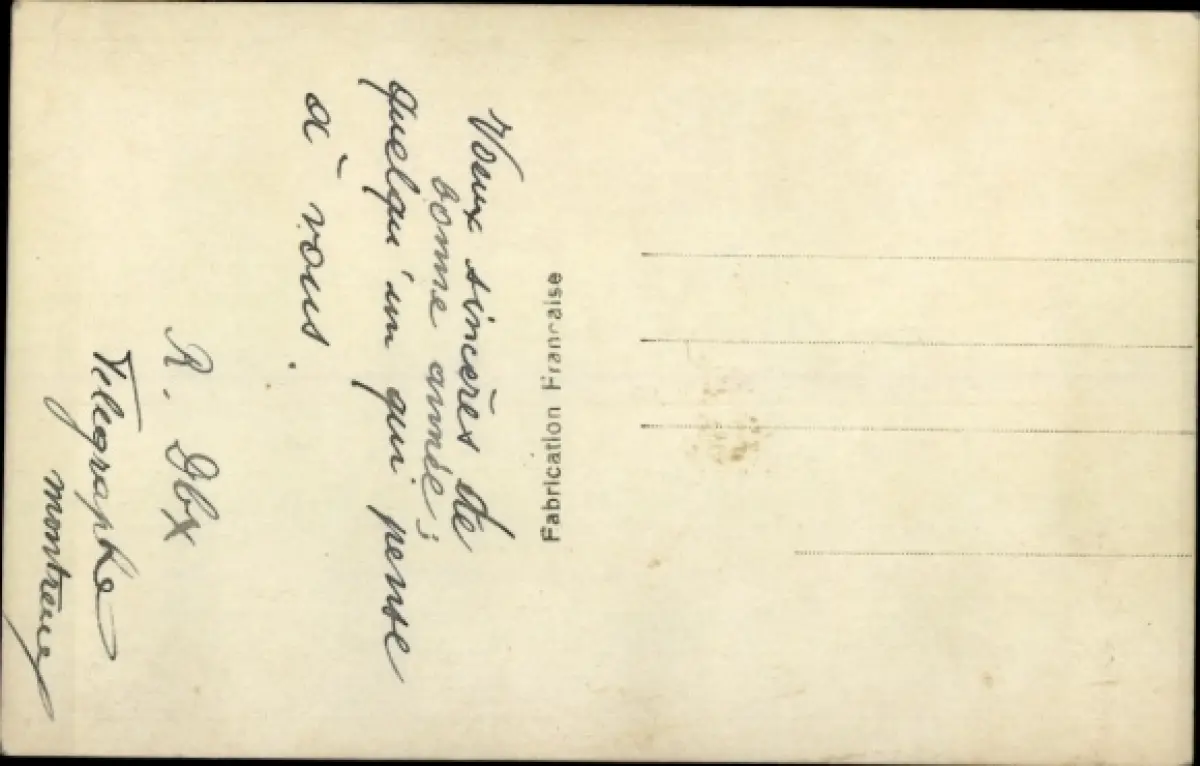 Voeux sincères de
bonne année ;
quelqu'un qui pense
à vous.
R. Dbx
Télégraphe
montreuil
Fabrication Française